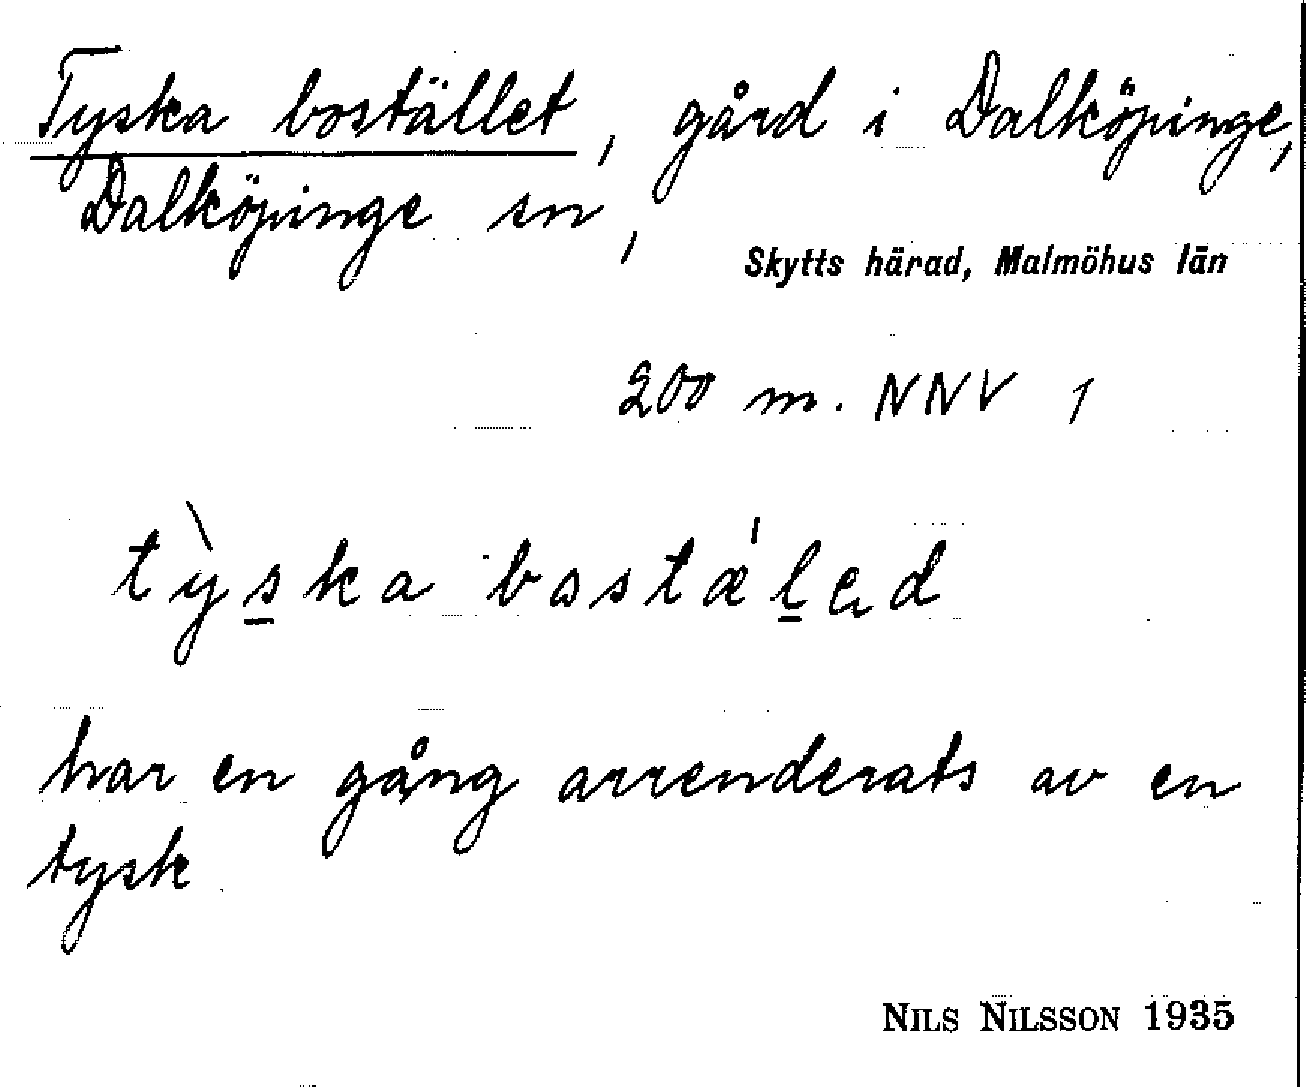 Tyska bostället, gård i Dalköpinge,
Dalköpinge sn,
Skytts härad, Malmöhus län
200 m. NNV 1
tỳska bostǽled
har en gång arrenderats av en
tysk
NILS NILSSON 1935